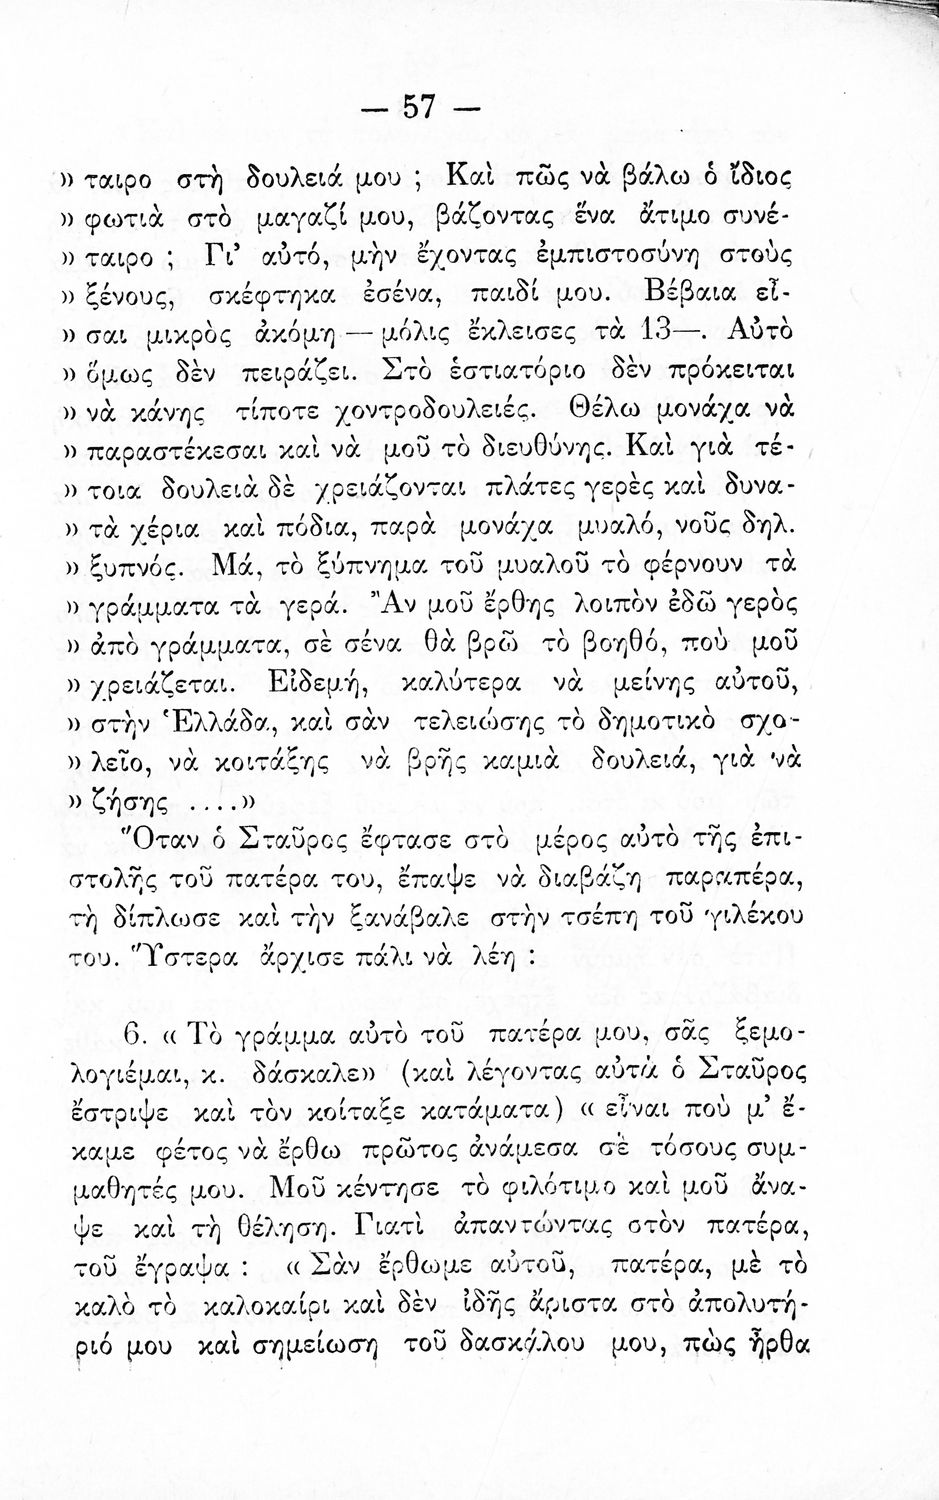 — 57 —
» ταιρο στὴ δουλειά μου ; Καὶ πῶς νὰ βάλω ὁ ἴδιος
» φωτιὰ στὸ μαγαζί μου, βάζοντας ἕνα ἄτιμο συνέ-
» ταιρο ; Γι’ αὐτό, μὴν ἔχοντας ἐμπιστοσύνη στοὺς
» ξένους, σκέφτηκα ἐσένα, παιδί μου. Βέβαια εἶ-
» σαι μικρὸς ἀκόμη — μόλις ἔκλεισες τὰ 13—. Αὐτὸ
» ὅμως δὲν πειράζει. Στὸ ἑστιατόριο δὲν πρόκειται
» νὰ κάνῃς τίποτε χοντροδουλειές. Θέλω μονάχα νὰ
» παραστέκεσαι καὶ νὰ μοῦ τὸ διευθύνῃς. Καὶ γιὰ τέ-
» τοια δουλειὰ δὲ χρειάζονται πλάτες γερὲς καὶ δυνα-
» τὰ χέρια καὶ πόδια, παρὰ μονάχα μυαλό, νοῦς δηλ.
» ξυπνός. Μά, τὸ ξύπνημα τοῦ μυαλοῦ τὸ φέρνουν τὰ
» γράμματα τὰ γερά. Ἂν μοῦ ἔρθῃς λοιπὸν ἐδῶ γερὸς
» ἀπὸ γράμματα, σὲ σένα θὰ βρῶ τὸ βοηθό, ποὺ μοῦ
» χρειάζεται. Εἰδεμή, καλύτερα νὰ μείνῃς αὐτοῦ,
» στὴν Ἑλλάδα, καὶ σὰν τελειώσῃς τὸ δημοτικὸ σχο-
» λεῖο, νὰ κοιτάξῃς νὰ βρῇς καμιὰ δουλειά, γιὰ νὰ
» ζήσῃς ....»
Ὅταν ὁ Σταῦρος ἔφτασε στὸ μέρος αὐτὸ τῆς ἐπι-
στολῆς τοῦ πατέρα του, ἔπαψε νὰ διαβάζῃ παραπέρα,
τὴ δίπλωσε καὶ τὴν ξανάβαλε στὴν τσέπη τοῦ γιλέκου
του. Ὕστερα ἄρχισε πάλι νὰ λέῃ :
6. « Τὸ γράμμα αὐτὸ τοῦ πατέρα μου, σᾶς ξεμο-
λογιέμαι, κ. δάσκαλε» (καὶ λέγοντας αὐτὰ ὁ Σταῦρος
ἔστριψε καὶ τὸν κοίταξε κατάματα) « εἶναι ποὺ μ’ ἔ-
καμε φέτος νὰ ἔρθω πρῶτος ἀνάμεσα σὲ τόσους συμ-
μαθητές μου. Μοῦ κέντησε τὸ φιλότιμο καὶ μοῦ ἄνα-
ψε καὶ τὴ θέληση. Γιατὶ ἀπαντώντας στὸν πατέρα,
τοῦ ἔγραψα : « Σὰν ἔρθωμε αὐτοῦ, πατέρα, μὲ τὸ
καλὸ τὸ καλοκαίρι καὶ δὲν ἰδῇς ἄριστα στὸ ἀπολυτή-
ριό μου καὶ σημείωση τοῦ δασκάλου μου, πὼς ἦρθα